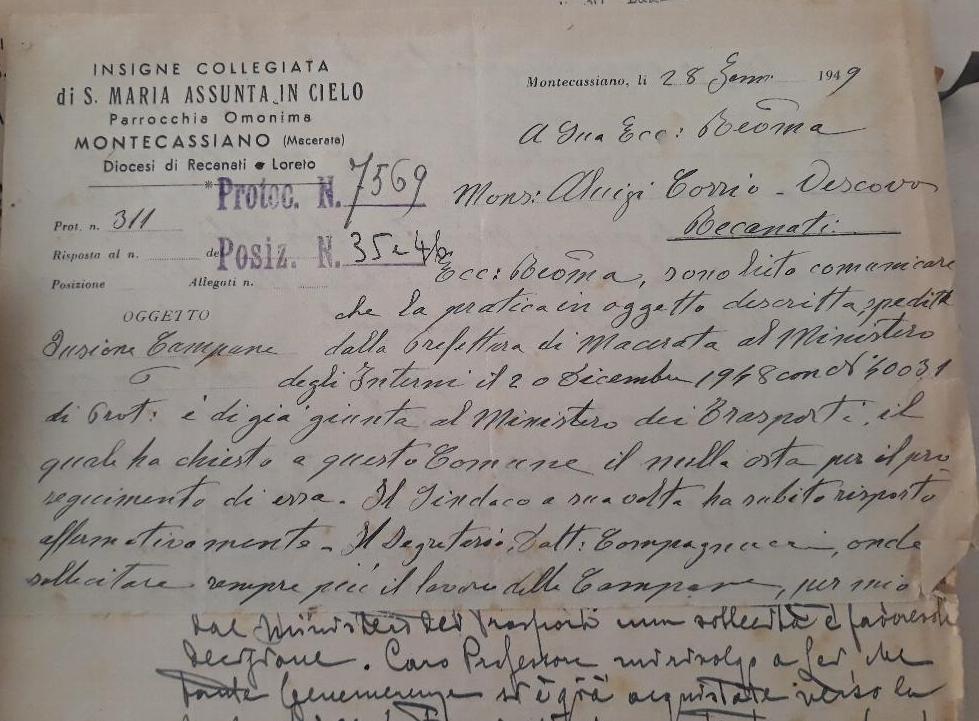 INSIGNE COLLEGIATA
di S. MARIA ASSUNTA IN CIELO
Parrocchia Omonima
MONTECASSIANO (Macerata)
Diocesi di Recanati e Loreto
Montecassiano, li 28 Genn. 1949
A Sua Ecc: Rev̄ma
Mons: Aluigi Cossio - Vescovo
Recanati.
Protoc. N. 7569
Prot. n. 311
Risposta al n. del
Posiz. N. 35
Posizione Allegati n.
OGGETTO
Fusione Campane
Ecc: Rev̄ma, sono lieto comunicare
che la pratica in oggetto descritta, spedita
dalla Prefettura di Macerata al Ministero
degli Interni il 20 Dicembre 1948 con N° 40031
di Prot: è di già giunta al Ministero dei Trasporti, il
quale ha chiesto a questo Comune il nulla osta per il pro
seguimento di essa. Il Sindaco a sua volta ha subito risposto
affermativamente - Il Segretario, Dott: Compagnucci, onde
sollecitare sempre più il lavoro delle Campane, per mio
dal Ministero dei Trasporti una sollecita e favorevole
decisione. Caro Professore mi rivolgo a Lei che
tante benemerenze si è già acquistate verso la